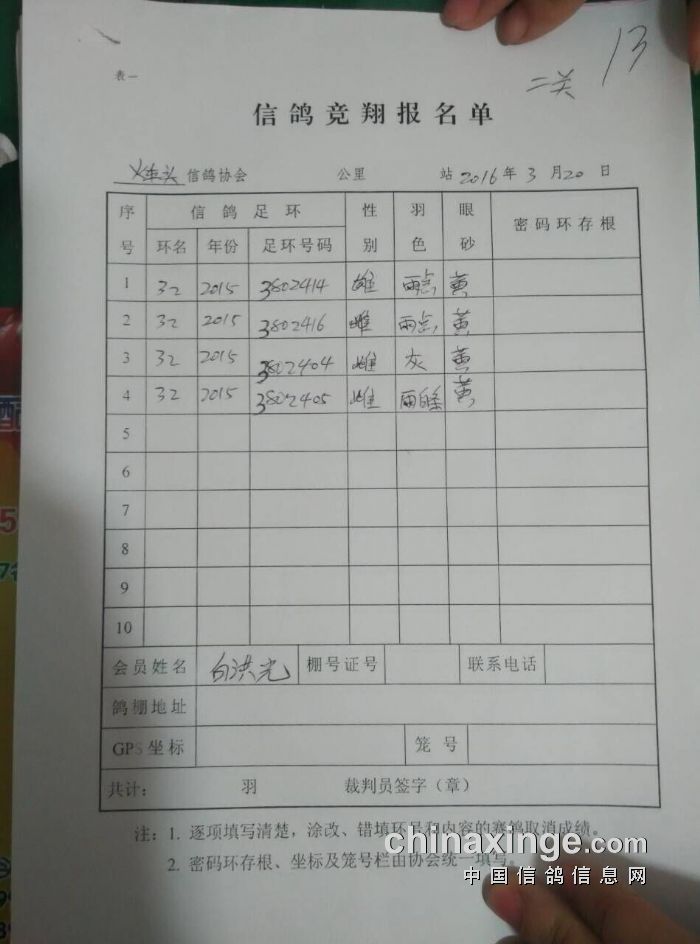 表一
二关 13
信鸽竞翔报名单
信鸽协会 公里 站 2016年3月20日
序号 信鸽足环 性别 羽色 眼砂 密码环存根
环名 年份 足环号码
1 32 2015 3802414 雄 雨点 黄
2 32 2015 3802416 雌 雨点 黄
3 32 2015 3802404 雌 灰 黄
4 32 2015 3802405 雌 雨白条 黄
5
6
7
8
9
10
会员姓名 白洪光 棚号证号 联系电话
鸽棚地址
GPS坐标 笼号
共计： 羽 裁判员签字（章）
注：1. 逐项填写清楚，涂改、错填环号和内容的赛鸽取消成绩。
2. 密码环存根、坐标及笼号栏由协会统一填写。
chinaxinge.com
中国信鸽信息网